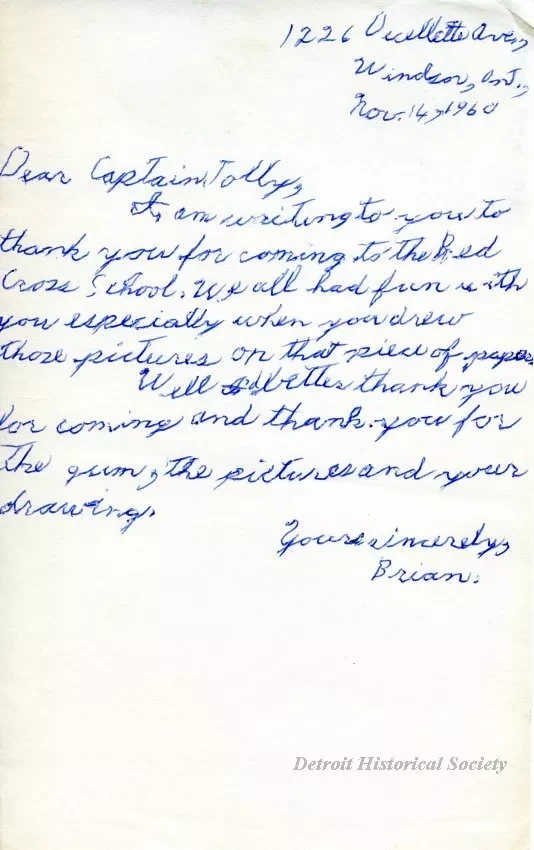 1226 Ouellette Ave.,
Windsor, Ont.,
Nov. 14, 1960
Dear Captain Jolly,
I am writing to you to
thank you for coming to the Red
Cross School. We all had fun with
you especially when you drew
those pictures on that piece of paper
Well I'd better thank you
for coming and thank you for
the gum, the pictures and your
drawing.
Yours sincerely,
Brian.
Detroit Historical Society